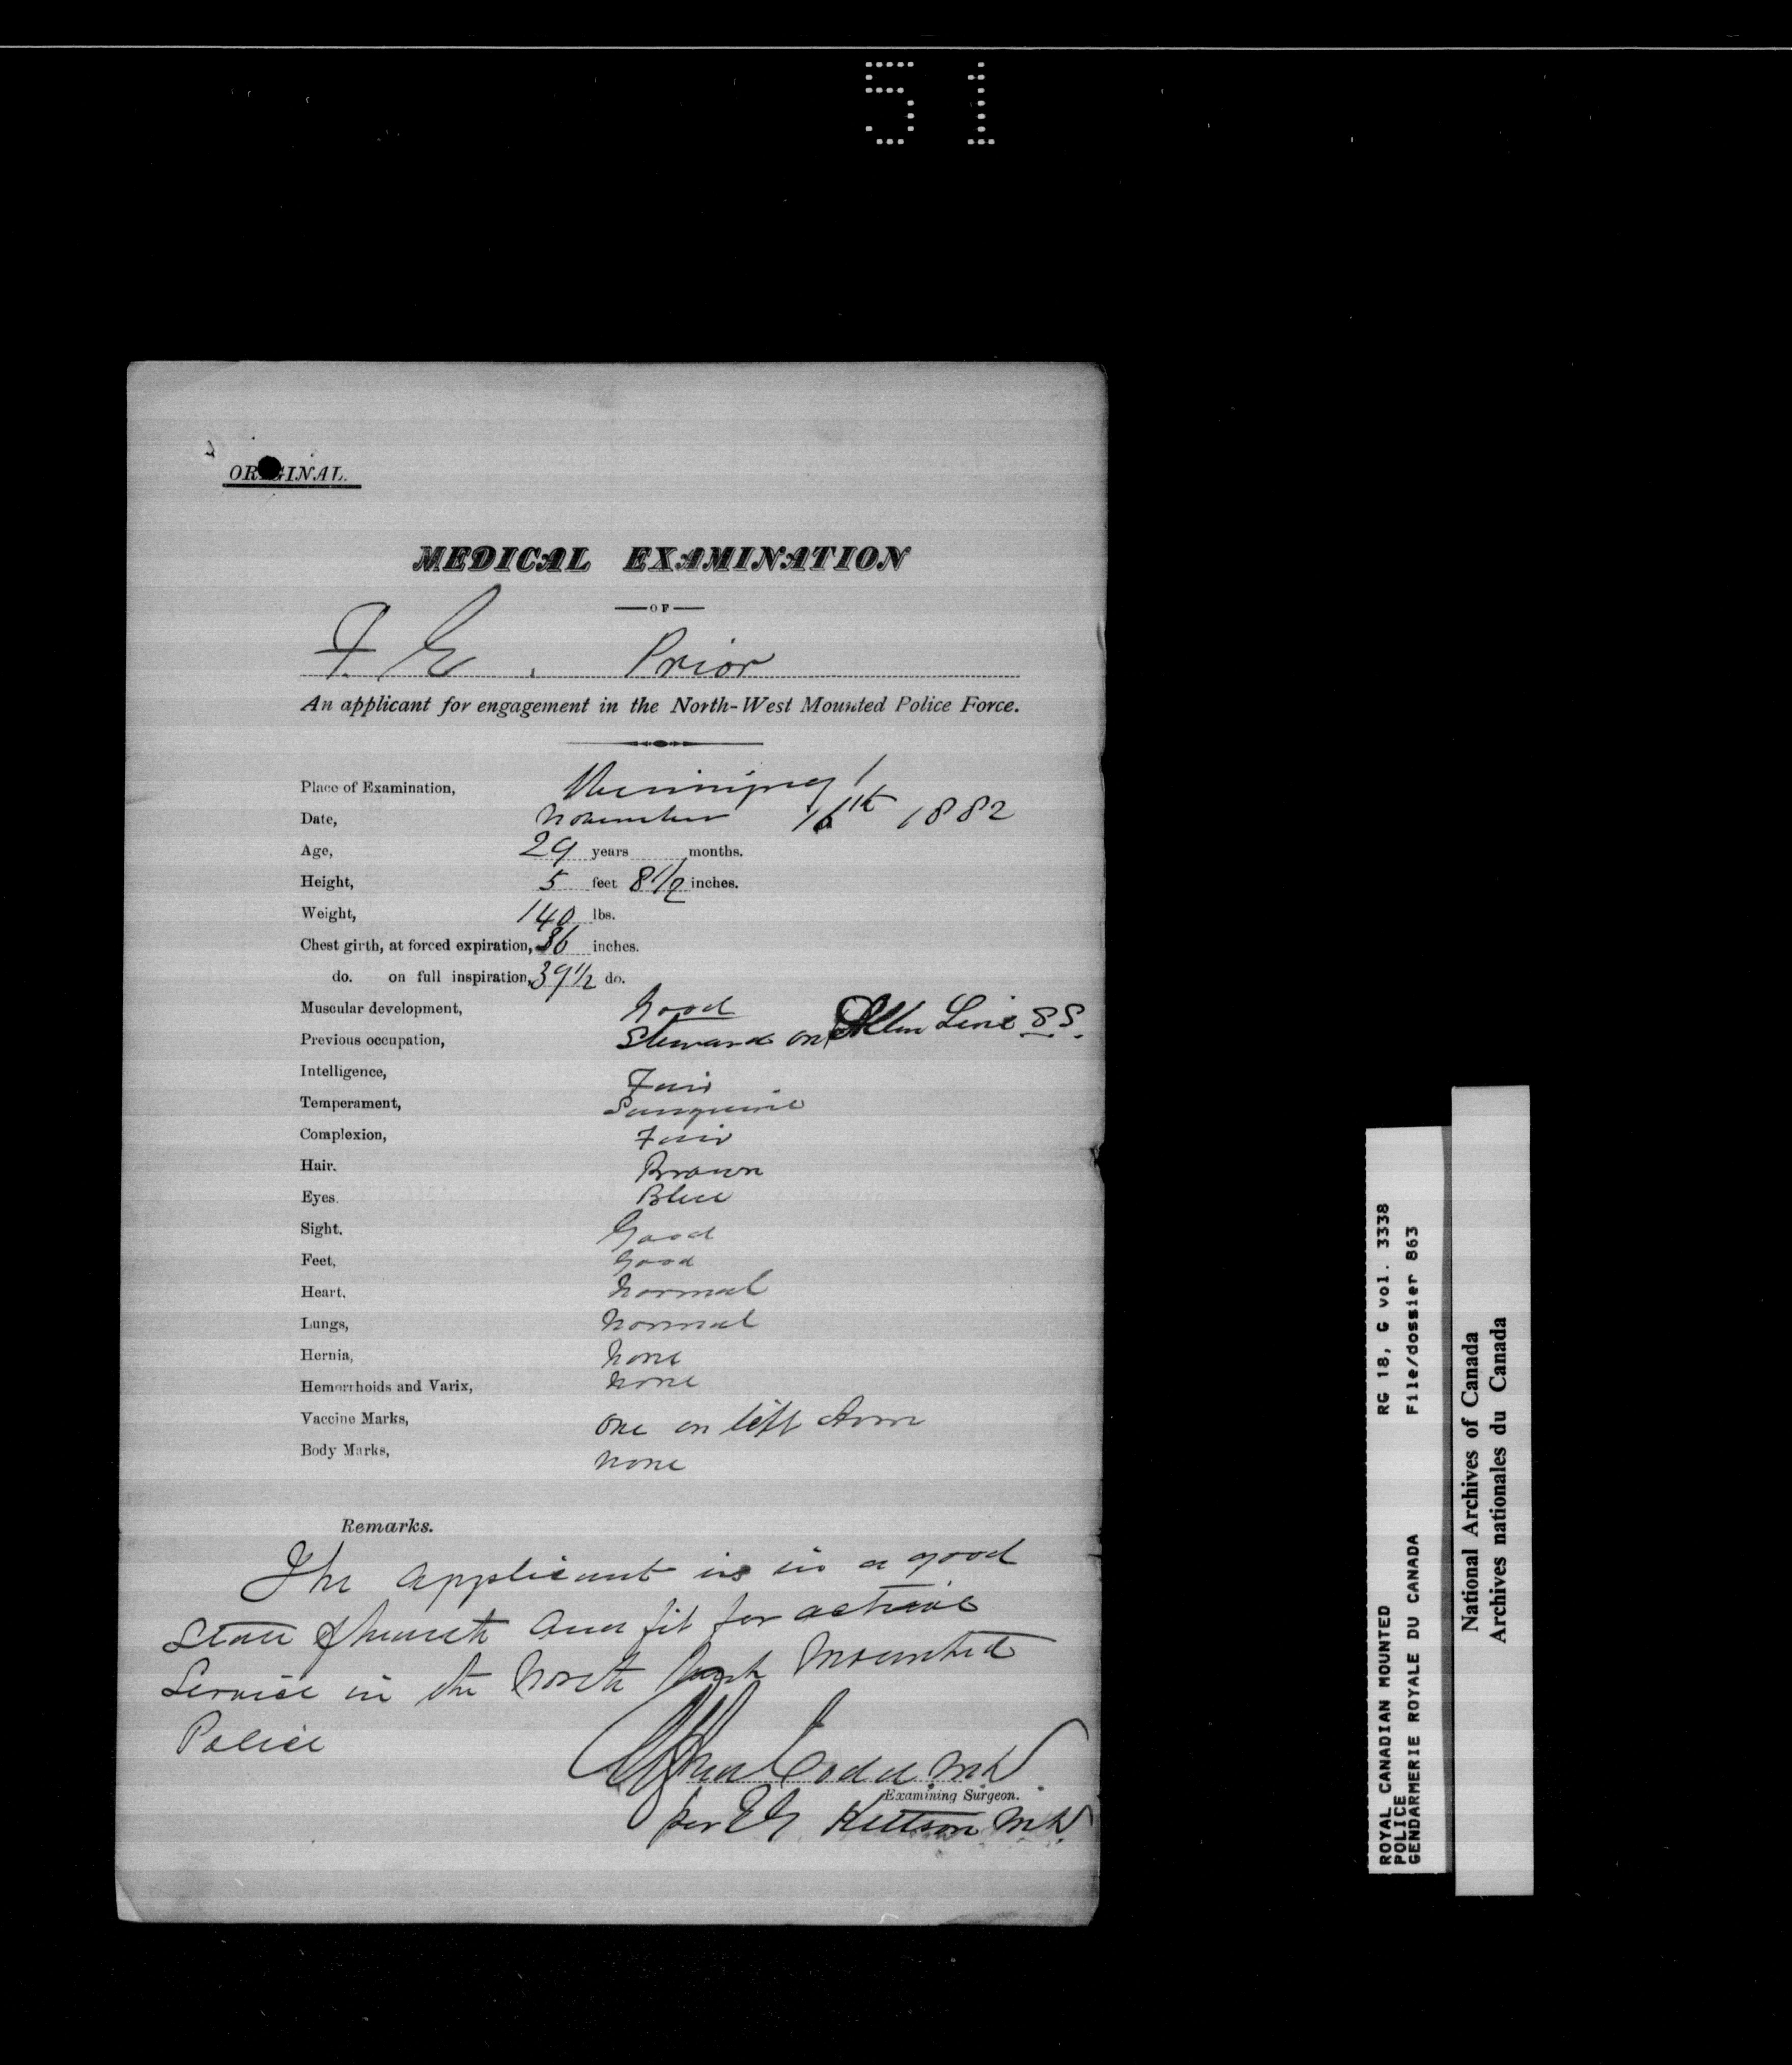 51
ORIGINAL.
MEDICAL EXAMINATION
—OF—
F. E. Prior
An applicant for engagement in the North-West Mounted Police Force.
Place of Examination, Winnipeg
Date, November 16th 1882
Age, 29 years months.
Height, 5 feet 8 1/2 inches.
Weight, 140 lbs.
Chest girth, at forced expiration, 36 inches.
do. on full inspiration, 39 1/2 do.
Muscular development, Good
Previous occupation, Steward on Allen Line S.S.
Intelligence, Fair
Temperament, Sanguine
Complexion, Fair
Hair. Brown
Eyes. Blue
Sight. Good
Feet, Good
Heart. Normal
Lungs, Normal
Hernia, None
Hemorrhoids and Varix, None
Vaccine Marks, One on left Arm
Body Marks, None
Remarks.
The applicant is in a good
state of health and fit for active
Service in the North West Mounted
Police
Codd M.D.
Examining Surgeon.
per Kittson M.D.
ROYAL CANADIAN MOUNTED RG 18, G vol. 3338
POLICE
GENDARMERIE ROYALE DU CANADA File/dossier 863
National Archives of Canada
Archives nationales du Canada